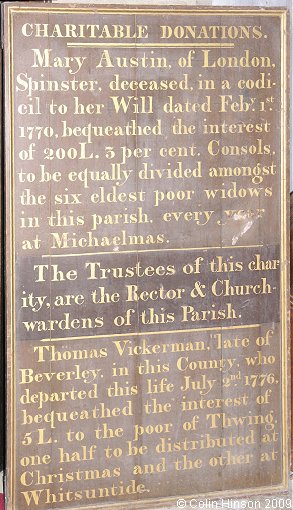 CHARITABLE DONATIONS.
Mary Austin, of London,
Spinster, deceased, in a codi-
cil to her Will dated Feb: 1.st
1770, bequeathed the interest
of 200L. 3 per cent. Consols,
to be equally divided amongst
the six eldest poor widows
in this parish, every year
at Michaelmas.
The Trustees of this char
ity, are the Rector & Church-
wardens of this Parish.
Thomas Vickerman, late of
Beverley, in this County, who
departed this life July 2nd 1776,
bequeathed the interest of
5L. to the poor of Thwing,
one half to be distributed at
Christmas and the other at
Whitsuntide.
©Colin Hinson 2009